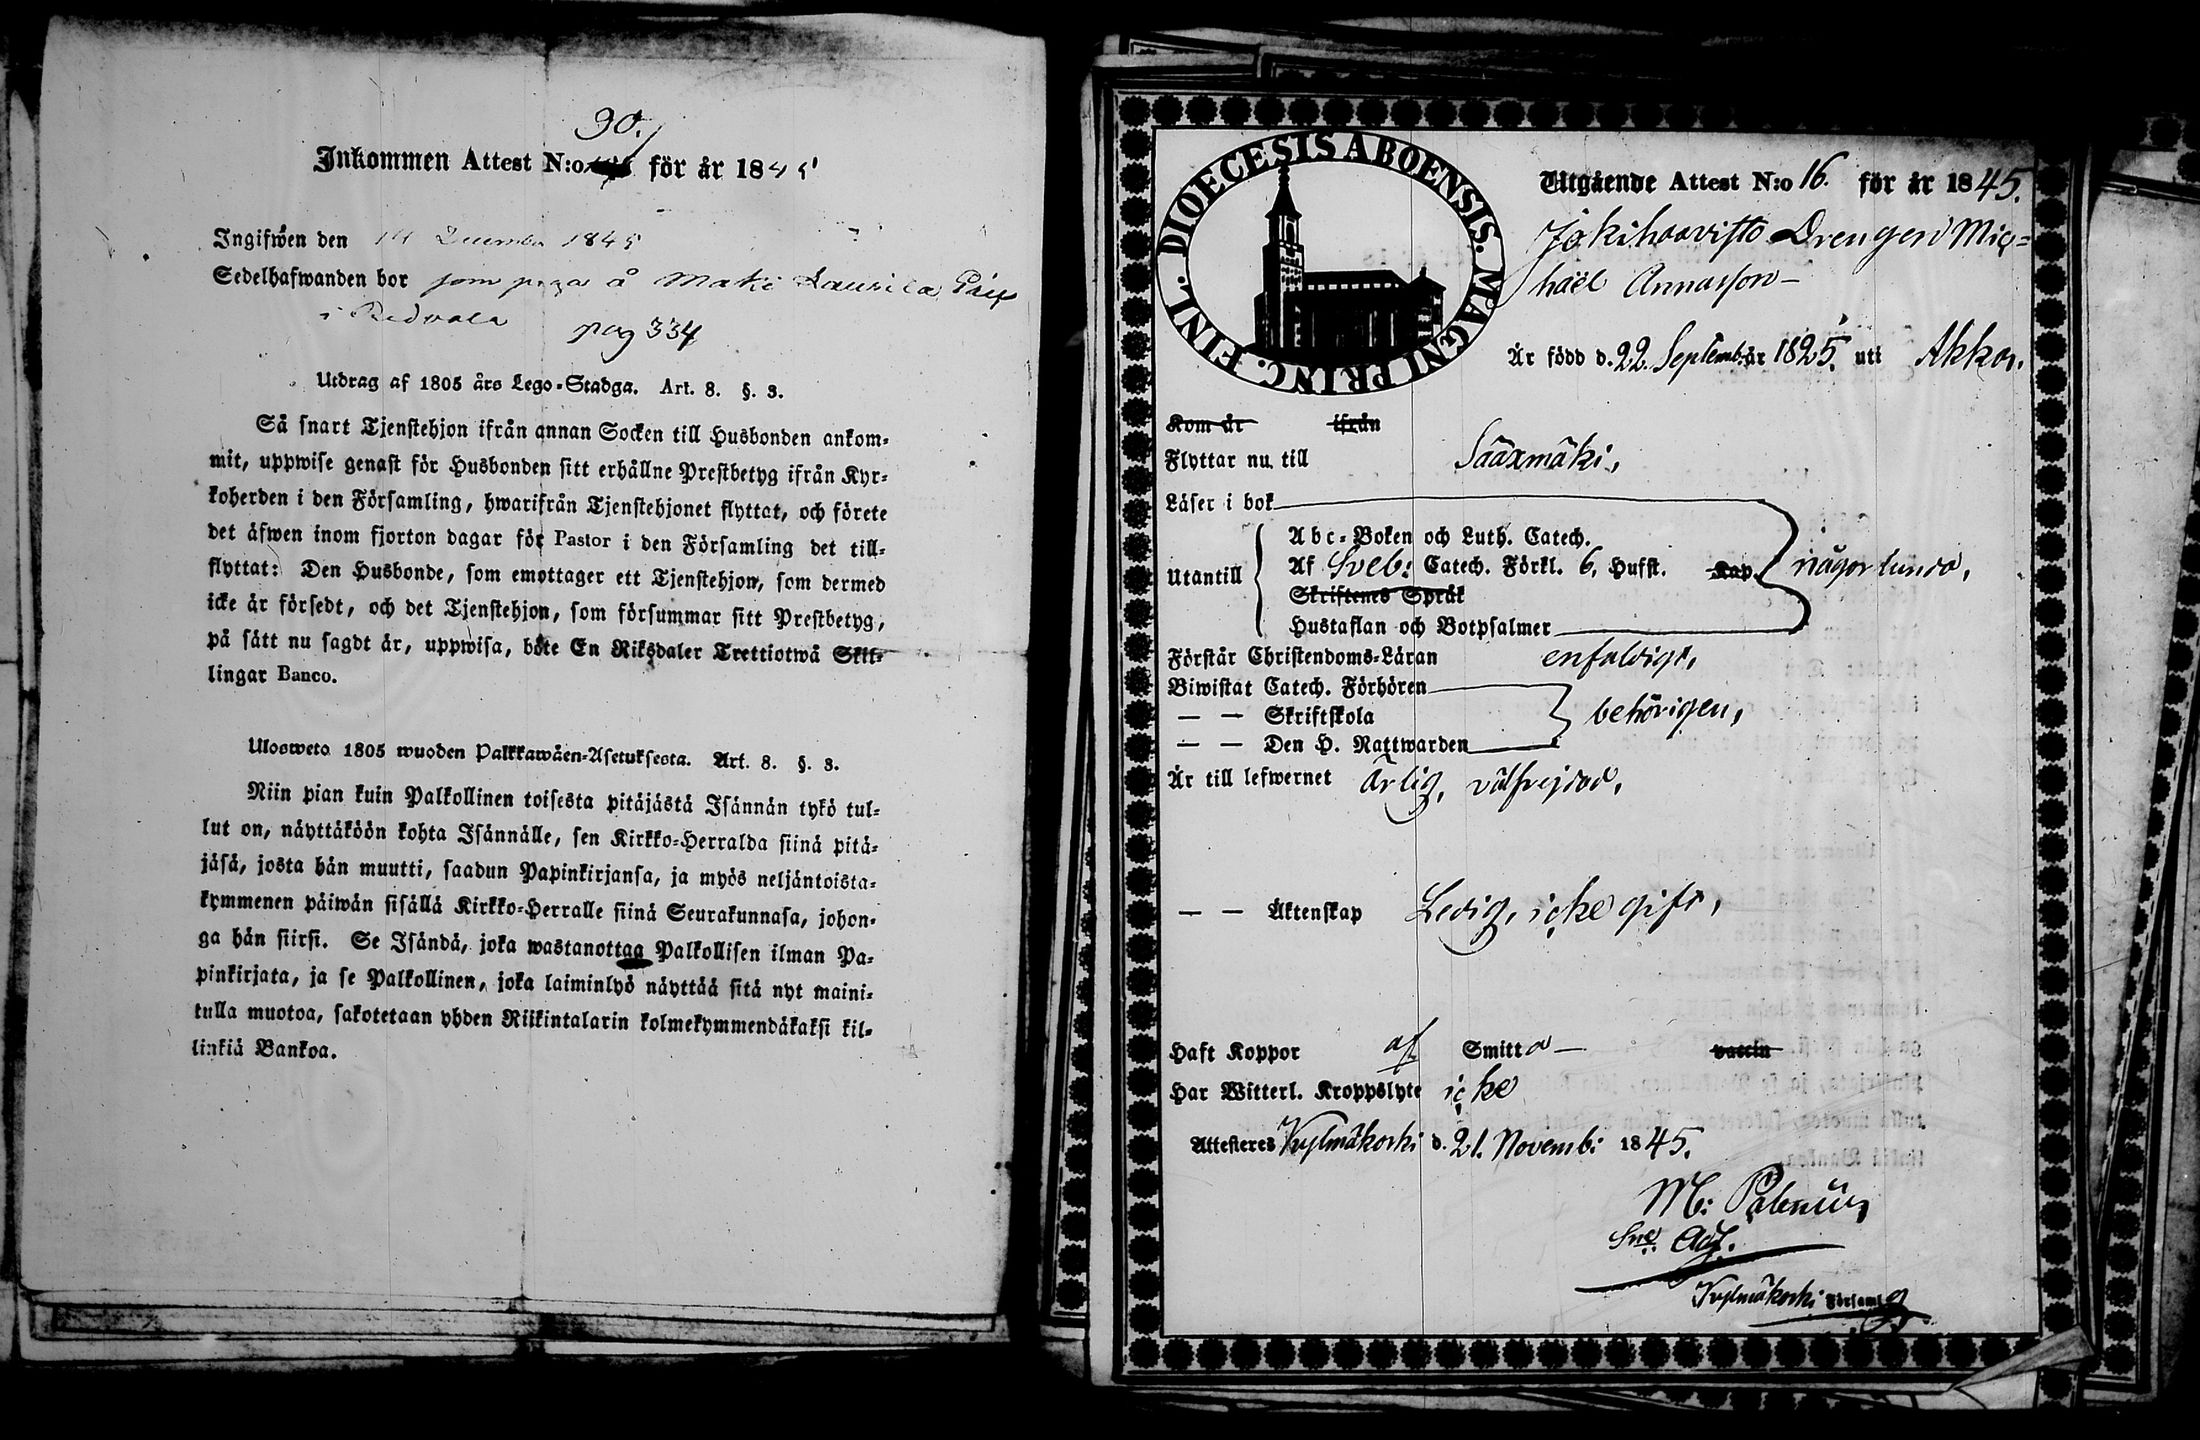 30.
Inkommen Attest N:o för år 1845
Ingifwen den 14 December 1845
Sedelhafwanden bor som piga å Maki Laurila
i Ridvala pag 334
Utdrag af 1805 års Lego-Stadga. Art. 8. §. 3.
Så snart Tjenstehjon ifrån annan Socken till Husbonden ankom-
mit, uppwise genast för Husbonden sitt erhållne Prestbetyg ifrån Kyr-
koherden i den Församling, hwarifrån Tjenstehjonet flyttat, och förete
det äfwen inom fjorton dagar för Pastor i den Församling det till-
flyttat: Den Husbonde, som emottager ett Tjenstehjon, som dermed
icke är försedt, och det Tjenstehjon, som försummar sitt Prestbetyg,
på sätt nu sagdt är, uppwisa, böte En Riksdaler Trettiotwå Skil-
lingar Banco.
Ulosweto 1805 wuoden Palkkawäen-Asetuksesta. Art. 8. §. 3.
Niin pian kuin Palkollinen toisesta pitäjästä Isännän tykö tul-
lut on, näyttäköön kohta Isännälle, sen Kirkko-Herralda siinä pitä-
jäsä, josta hän muutti, saadun Papinkirjansa, ja myös neljäntoista-
kymmenen päiwän sisällä Kirkko-Herralle siinä Seurakunnasa, johon-
ga hän siirsi. Se Isändä, joka wastanottaa Palkollisen ilman Pa-
pinkirjata, ja se Palkollinen, joka laiminlyö näyttää sitä nyt maini-
tulla muotoa, sakotetaan yhden Riikintalarin kolmekymmendäkaksi kil-
linkiä Bankoa.
DIOECESIS ABOENSIS. MAGNI PRINC. FINL.
Utgående Attest N:o 16. för år 1845.
Jokihaavisto Drengen Mig=
haël Annasson
Är född d. 22 Septemb. år 1825. uti Akkas.
Kom år ifrån
Flyttar nu till Sääxmäki,
Läser i bok
Abc-Boken och Luth. Catech.
Utantill Af Sveb: Catech. Förkl. 6, Hufst. Kap. någorlunda,
Skriftenes Språk
Hustaflan och Botpsalmer
Förstår Christendoms-Läran enfaldigt,
Biwistat Catech. Förhören
— — Skriftskola behörigen,
— — Den H. Nattwarden
Är till lefwernet ärlig, välfrejdad,
— — Äktenskap Ledig, icke gift,
Haft Koppor af Smitta vaccin
Har Witterl. Kroppslyte icke
Attesteras Kylmäkoski d. 21. Novemb: 1845.
M: Palenius
Sne Adj.
Kylmäkoski Församlg